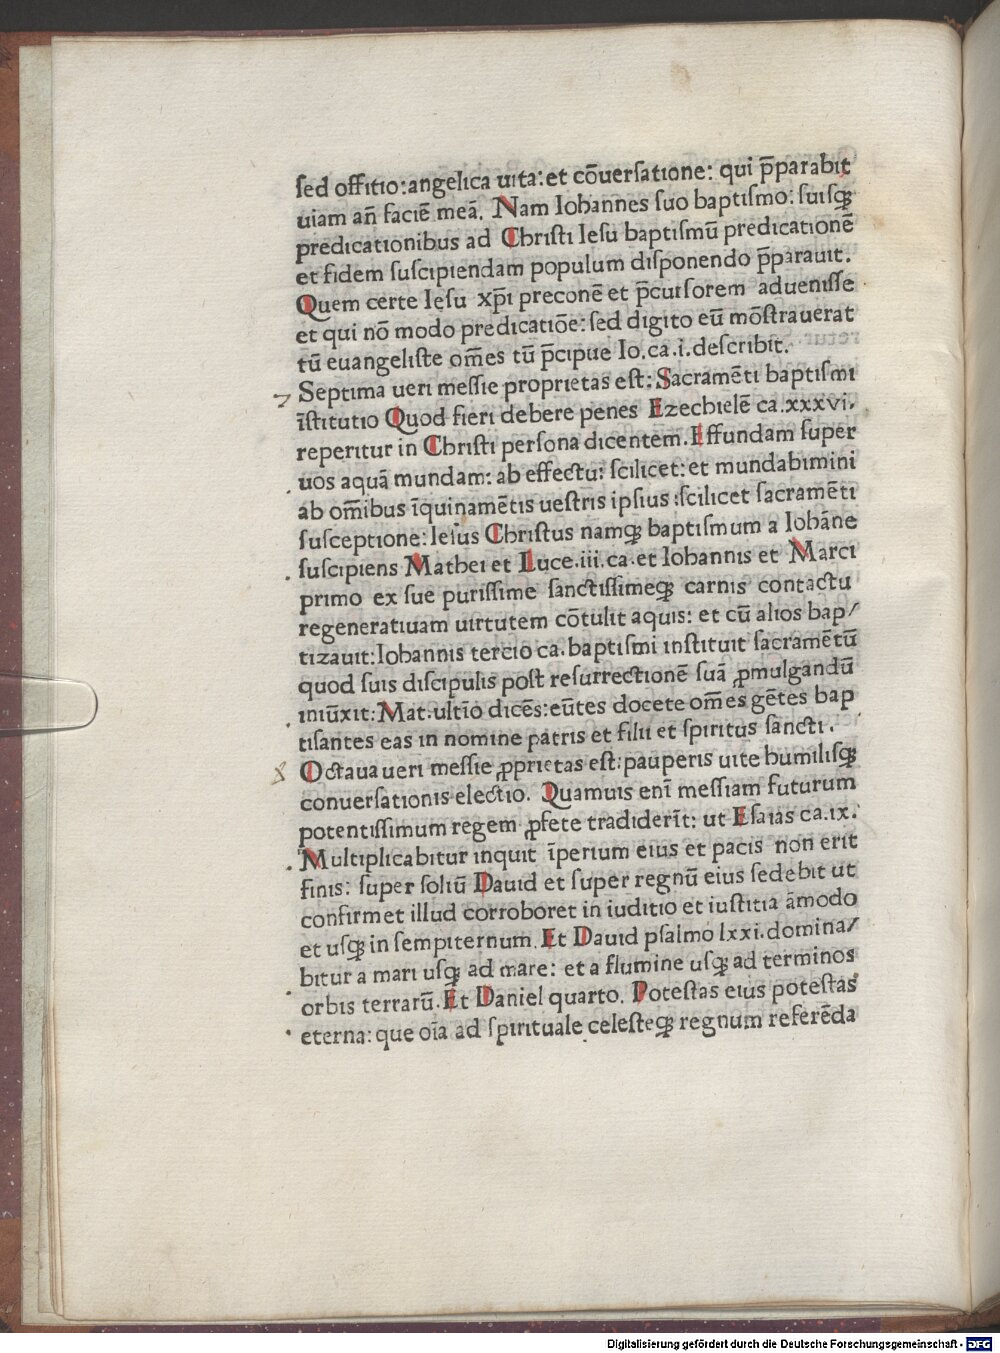 ſed offitio: angelica uita: et cõuerſatione: qui p̃parabit
uiam añ faciẽ meã. Nam Iohannes ſuo baptiſmo: ſuiſqꝫ
predicationibus ad Chriſti Ieſu baptiſmũ predicationẽ
et fidem ſuſcipiendam populum diſponendo p̃parauit.
Quem certe Ieſu xp̃i preconẽ et p̃curſorem adueniſſe
et qui nõ modo predicatiõe: ſed digito eũ mõſtrauerat
tũ euangeliſte om̃es tũ p̃cipue Io.ca.i.deſcribit.
7 Septima ueri meſſie proprietas eſt: Sacramẽti baptiſmi
ĩſtitutio Quod fieri debere penes Ezechielẽ ca.xxxvi.
reperitur in Chriſti perſona dicentem. Effundam ſuper
uos aquã mundam: ab effectu: ſcilicet: et mundabimini
ab om̃ibus ĩquinamẽtis ueſtris ipſius :ſcilicet ſacramẽti
ſuſceptione: Ieſus Chriſtus namqꝫ baptiſmum a Iohãne
ſuſcipiens Mathei et Luce.iii.ca.et Iohannis et Marci
primo ex ſue puriſſime ſanctiſſimeqꝫ carnis contactu
regeneratiuam uirtutem cõtulit aquis: et cũ alios bap/
tizauit: Iohannis tercio ca. baptiſmi inſtituit ſacramẽtũ
quod ſuis diſcipulis poſt reſurrectionẽ ſuã ꝓmulgandũ
iniũxit: Mat.ultĩo dicẽs: eũtes docete om̃es gẽtes bap
tiſantes eas in nomine patris et filii et ſpiritus ſancti.
8 Octaua ueri meſſie ꝓprietas eſt: pauperis uite humiliſqꝫ
conuerſationis electio. Quamuis enĩ meſſiam futurum
potentiſſimum regem ꝓfete tradiderĩt: ut Eſaias ca.ix.
Multiplicabitur inquit ĩperium eius et pacis non erit
finis: ſuper ſoliũ Dauid et ſuper regnũ eius ſedebit ut
confirmet illud corroboret in iuditio et iuſtitia ãmodo
et uſqꝫ in ſempiternum. Et Dauid pſalmo lxxi. domina/
bitur a mari uſqꝫ ad mare: et a flumine uſqꝫ ad terminos
orbis terrarũ. Et Daniel quarto. Poteſtas eius poteſtas
eterna: que oĩa ad ſpirituale celeſteqꝫ regnum referẽda
Digitalisierung gefördert durch die Deutsche Forschungsgemeinschaft - DFG